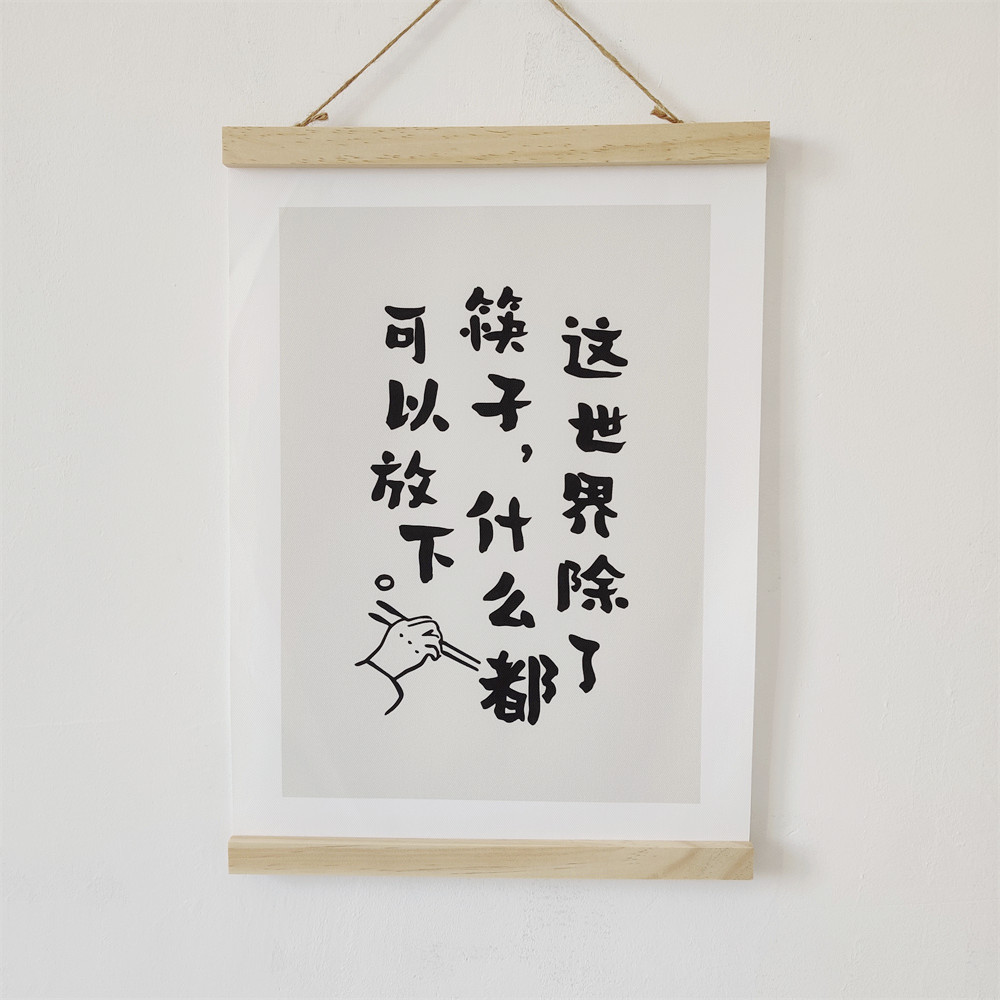 这世界除了
筷子，什么都
可以放下。